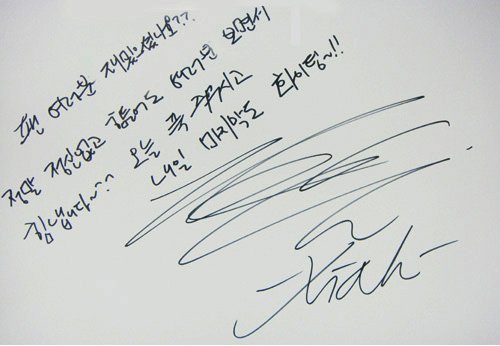 팬 여러분 재밌으셨나요??
정말 정신없고 힘들어도 여러분 보면서
힘냅니다~^^ 오늘 푹 주무시고
내일 마지막도 화이팅~!!
Xiah~